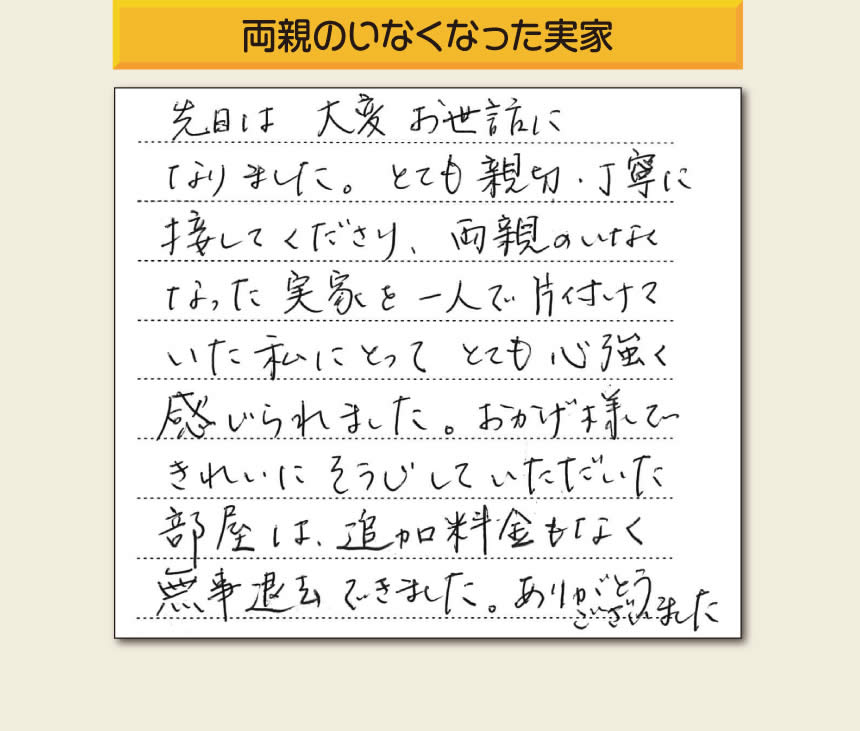 両親のいなくなった実家
先日は 大変 お世話に
なりました。とても親切・丁寧に
接してくださり、両親のいなく
なった実家を一人で片付けて
いた私にとって とても心強く
感じられました。おかげ様で
きれいにそうじしていただいた
部屋は、追加料金もなく
無事退去できました。ありがとう
ございました